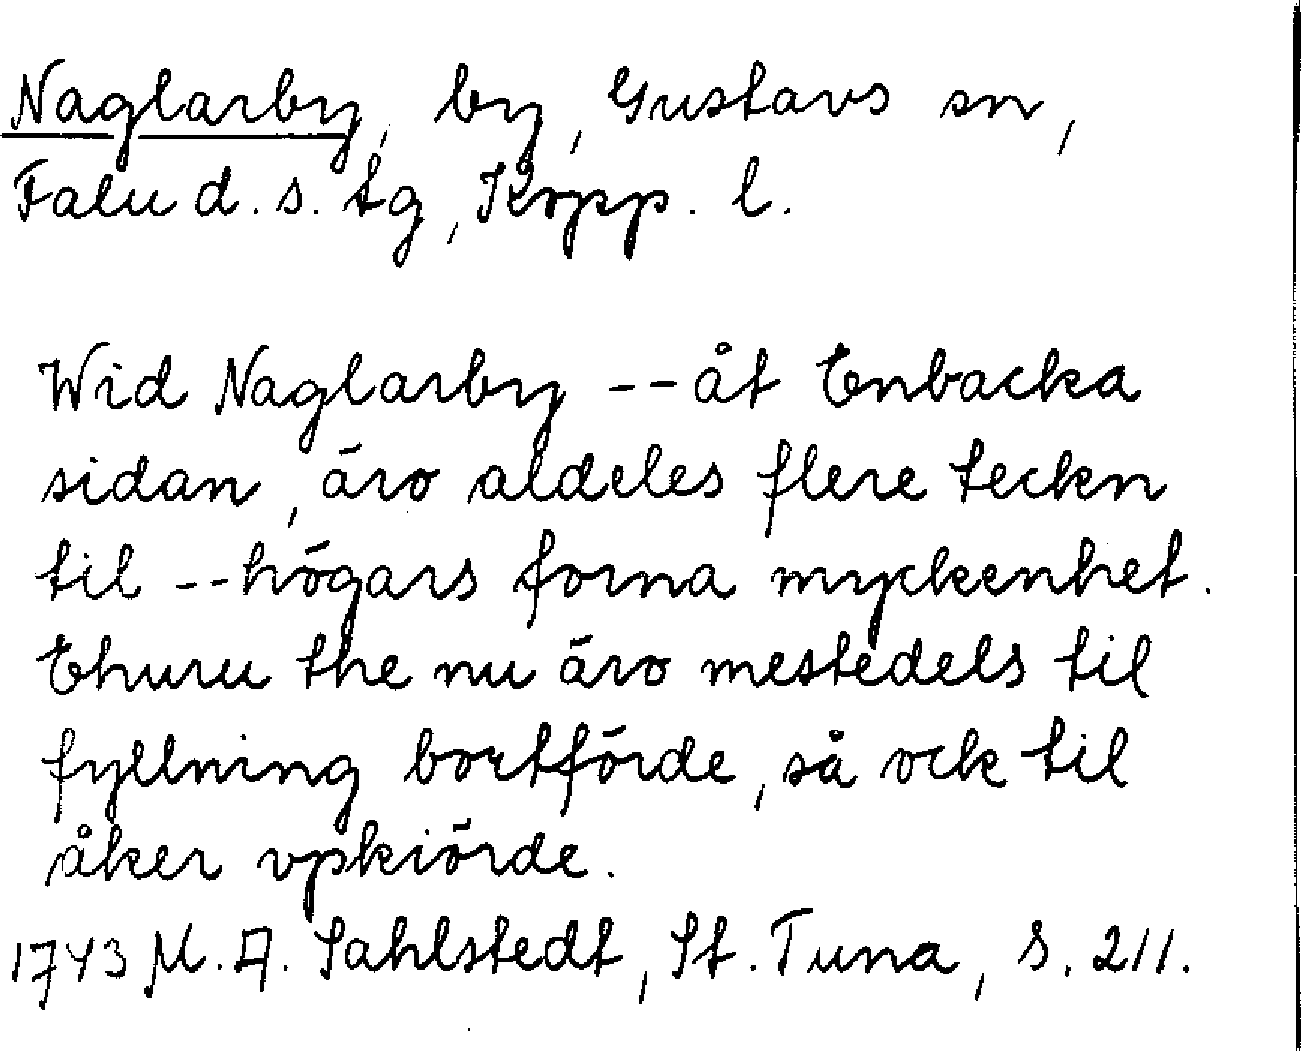 Naglarby, by, Gustavs sn,
Falu d. s. tg, Kopp. l.
Wid Naglarby -- åt Enbacka
sidan, äro aldeles flere teckn
til -- högars forna myckenhet.
Ehuru the nu äro mestedels til
fyllning bortförde, så ock til
åker vpkiörde.
1743 M. A. Sahlstedt, St. Tuna, S. 211.